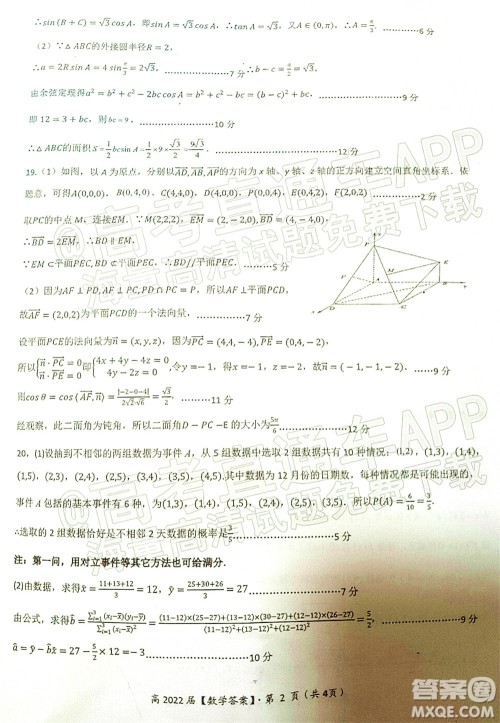 ∴sin(B+C)=√3sinAcosA,∴sinA=√3sinAcosA,∴tanA=√3,又A∈(0,π),∴A=π/3. …………6分
(2)∵△ABC的外接圆半径R=2,
∴a=2RsinA=4sin π/3=2√3, …………7分 ∴b-c=√3,
由余弦定理得a²=b²+c²-2bccosA= …………9分
即12=3+bc,则bc=9. …………10分
∴△ABC的面积S=1/2 bcsinA=1/2×9×√3/2=9√3/4 …………12分
19.(1)如图,以A为原点,分别以AD,AB,AF的方向为x轴、y轴、z轴的正方向建立空间直角坐标系.依
题意,可得A(0,0,0), B(0,4,0), C(4,4,0), D(4,0,0),
取PC的中点M,连接EM.∵M(2,2,2), EM=(2,-2,0), BD=(4,-4,0)
∴BD=2EM,∴BD∥EM. …………3分
∵EM⊂平面PEC,BD⊄平面PEC,∴BD∥平面PEC …………5分
(2)因为AF⊥PD,AF⊥PC,PD∩PC=P,所以AF⊥平面PCD,
故AF=(2,0,2)为平面PCD的一个法向量, …………7分
设平面PCE的法向量为n=(x,y,z),因为PC=(4,4,-4),PE=(0,4,-2),
所以{n·PC=0 n·PE=0 即{4x+4y-4z=0 4y-2z=0 ,令y=-1,得x=-1,z=-2,故n=(-1,-1,-2) …………9分
则cosθ=cos⟨AF,n⟩=|-2-0-4|/(2√2·√6)=√3/2, …………11分
经观察,此二面角为钝角,所以二面角D-PC-E的大小为5π/6 …………12分
20.(1)设抽到不相邻的两组数据为事件A,从5组数据中选取2组数据共有10种情况:(1,2),(1,3),(1,4),
(1,5),(2,3),(2,4),(2,5),(3,4),(3,5),(4,5),其中数据为12月份的日期数,每种情况都是等可能出现的,
事件A包括的基本事件有6种,为(1,3),(1,4),(1,5),(2,4),(2,5),(3,5).所以P(A)=6/10=3/5.
∴选取的2组数据恰好是不相邻2天数据的概率是3/5 …………5分
注:第一问,用对立事件等其它方法也可给满分.
(2)由数据,求得x̄=(11+13+12)/3=12,ȳ=(25+30+26)/3=27 …………7分
由公式,求得b̂=Σ³ᵢ₌₁(xᵢ-x̄)(yᵢ-ȳ)/Σ³ᵢ₌₁(xᵢ-x̄)²=[(11-12)×(25-27)+(13-12)×(30-27)+(12-12)×(26-27)]/[(11-12)²+(13-12)²+(12-12)²]=5/2, …………9分
â=ȳ-b̂x̄=27-5/2×12=-3 …………10分
高2022届【数学答案】·第2页(共4页)
答案圈
MXQE.COM